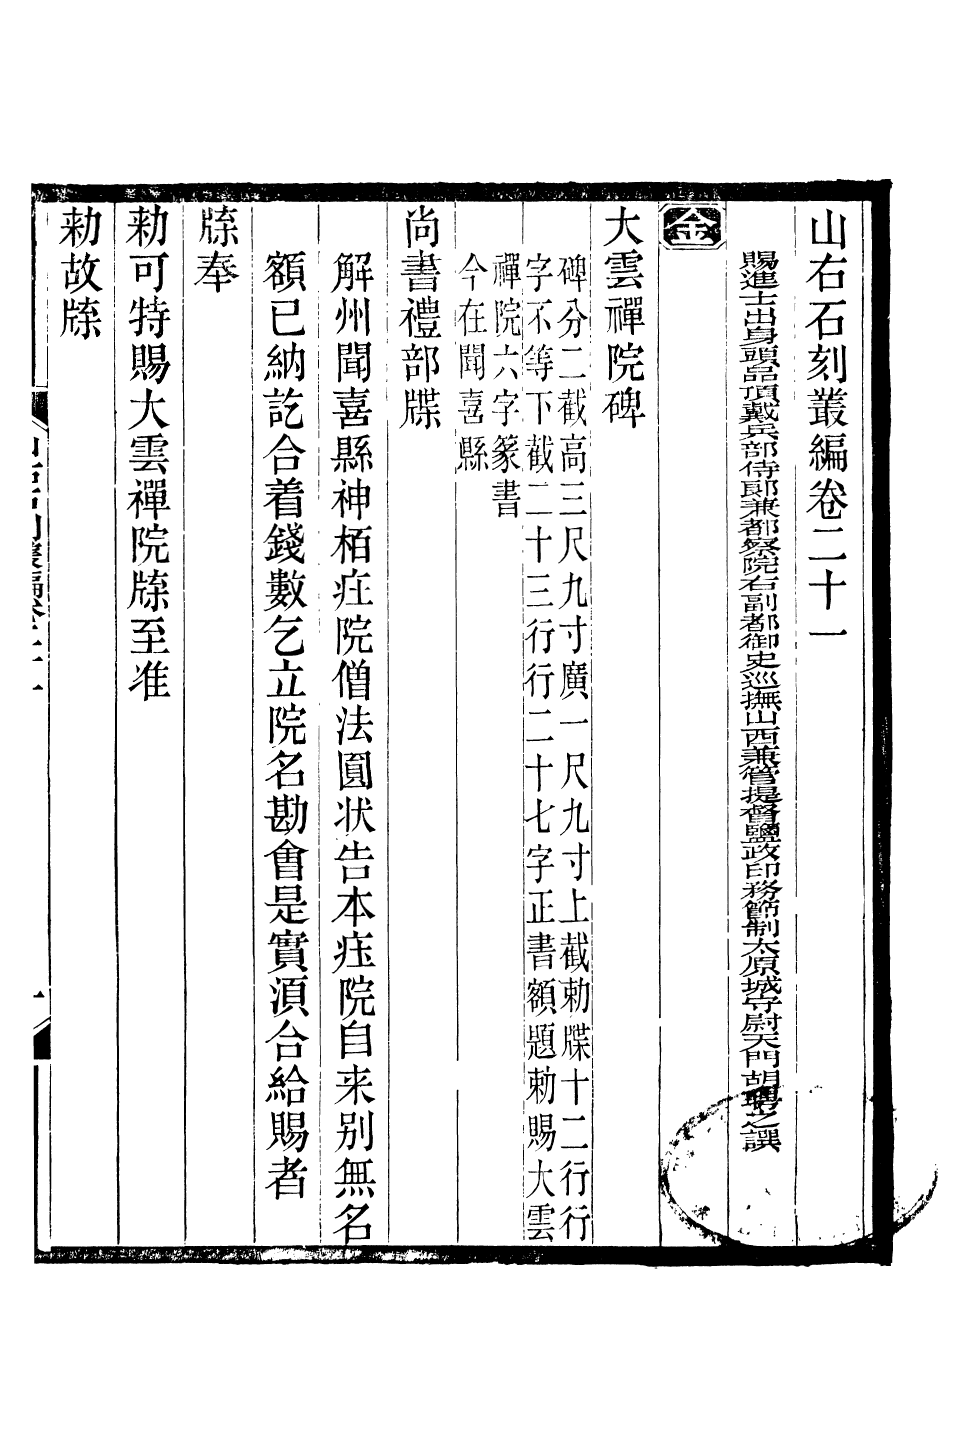 山右石刻叢編卷二十一
賜進士出身頭品頂戴兵部侍郎兼都察院右副都御史巡撫山西兼管提督鹽政印務節制太原城守尉天門胡聘之譔
金
大雲禪院碑
碑分二截高三尺九寸廣一尺九寸上截勅牒十二行行
字不等下截二十三行行二十七字正書額題勅賜大雲
禪院六字篆書
今在聞喜縣
尚書禮部牒
解州聞喜縣神栢疰院僧法圓状告本疰院自来別無名
額已納訖合着錢數乞立院名勘會是實湏合給賜者
牒奉
勑可特賜大雲禪院牒至准
勑故牒
山右石刻叢編卷二十一
一